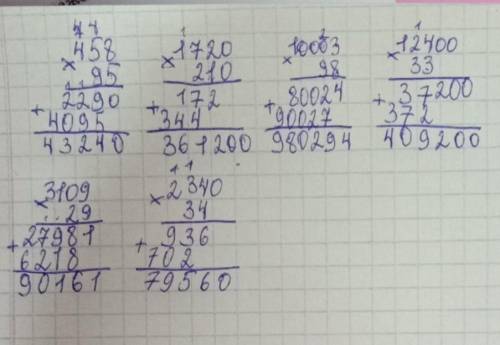 44
458
× 95
2290
+ 4095
43240
1
1720
× 210
172
+ 344
361200
2
10003
× 98
80024
+ 90027
980294
1
12400
× 33
37200
+ 372
409200
3109
× 29
27981
+ 6218
90161
11
2340
× 34
936
+ 702
79560